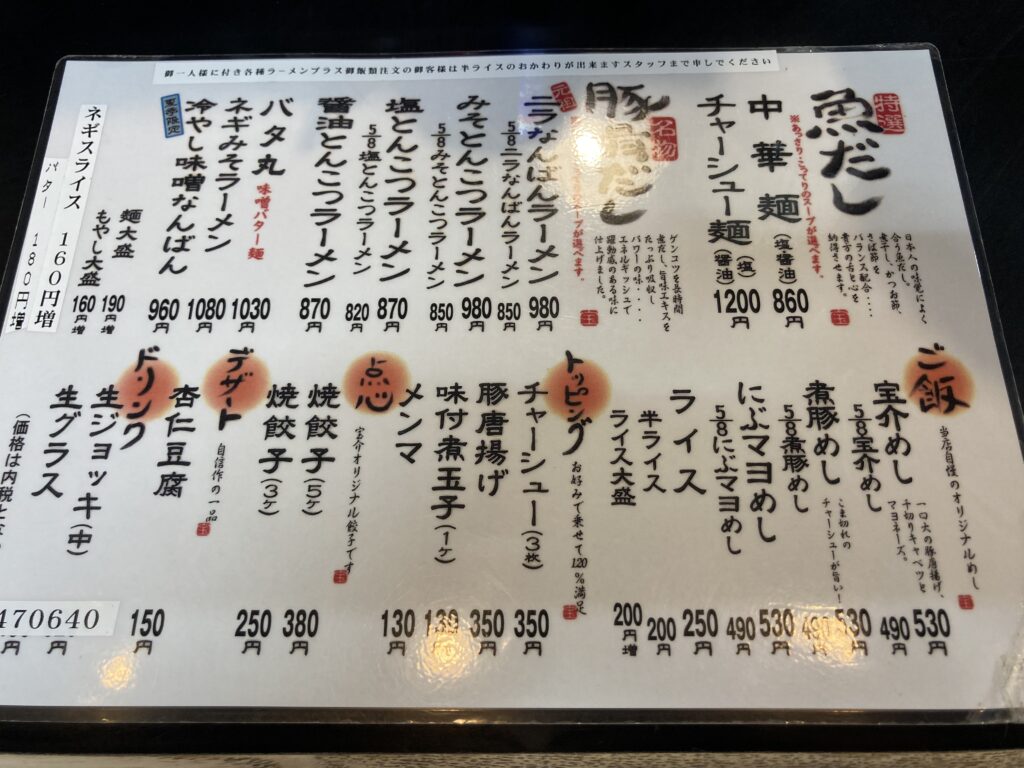 御一人様に付き各種ラーメンプラス御飯類注文の御客様は半ライスのおかわりが出来ますスタッフまで申してください
特選
魚だし
日本人の味覚によく
合う魚だし。
煮干し、かつお節、
さば節を
バランス配合‥‥
貴方の舌と心を
納得させます。
※あっさり・こってりのスープが選べます。
中華麺(塩醤油) 860円
チャーシュー麺(塩)(醤油) 1200円
元祖
名物
豚骨だし
ゲンコツを長時間
煮だし、旨味エキスを
たっぷり吸収し
パワーの味‥‥
エネルギッシュで
躍動感のある味に
仕上げました。
スープが選べます。
ニラなんばんラーメン 980円
5/8ニラなんばんラーメン 850円
みそとんこつラーメン 980円
5/8みそとんこつラーメン 850円
塩とんこつラーメン 870円
5/8塩とんこつラーメン 820円
醤油とんこつラーメン 870円
バタ丸 味噌バター麺 1030円
ネギみそラーメン 1080円
夏季限定
冷やし味噌なんばん 960円
麺大盛 190円増
もやし大盛 160円増
ネギスライス 160円増
バター 180円増
ご飯
当店自慢のオリジナルめし
宝介めし 530円
5/8宝介めし 490円
一口大の豚唐揚げ、
千切りキャベツと
マヨネーズ。
煮豚めし 530円
5/8煮豚めし 490円
こま切れの
チャーシューが旨い!
にぶマヨめし 530円
5/8にぶマヨめし 490円
ライス 250円
半ライス 200円
ライス大盛 200円増
トッピング
お好みで乗せて120%満足
チャーシュー(3枚) 350円
豚唐揚げ 350円
味付煮玉子(1ケ) 130円
メンマ 130円
点心
宝介オリジナル餃子です
焼餃子(5ケ) 380円
焼餃子(3ケ) 250円
デザート
自信作の一品
杏仁豆腐 150円
ドリンク
生ジョッキ(中) 円
生グラス 円
(価格は内税と
470640